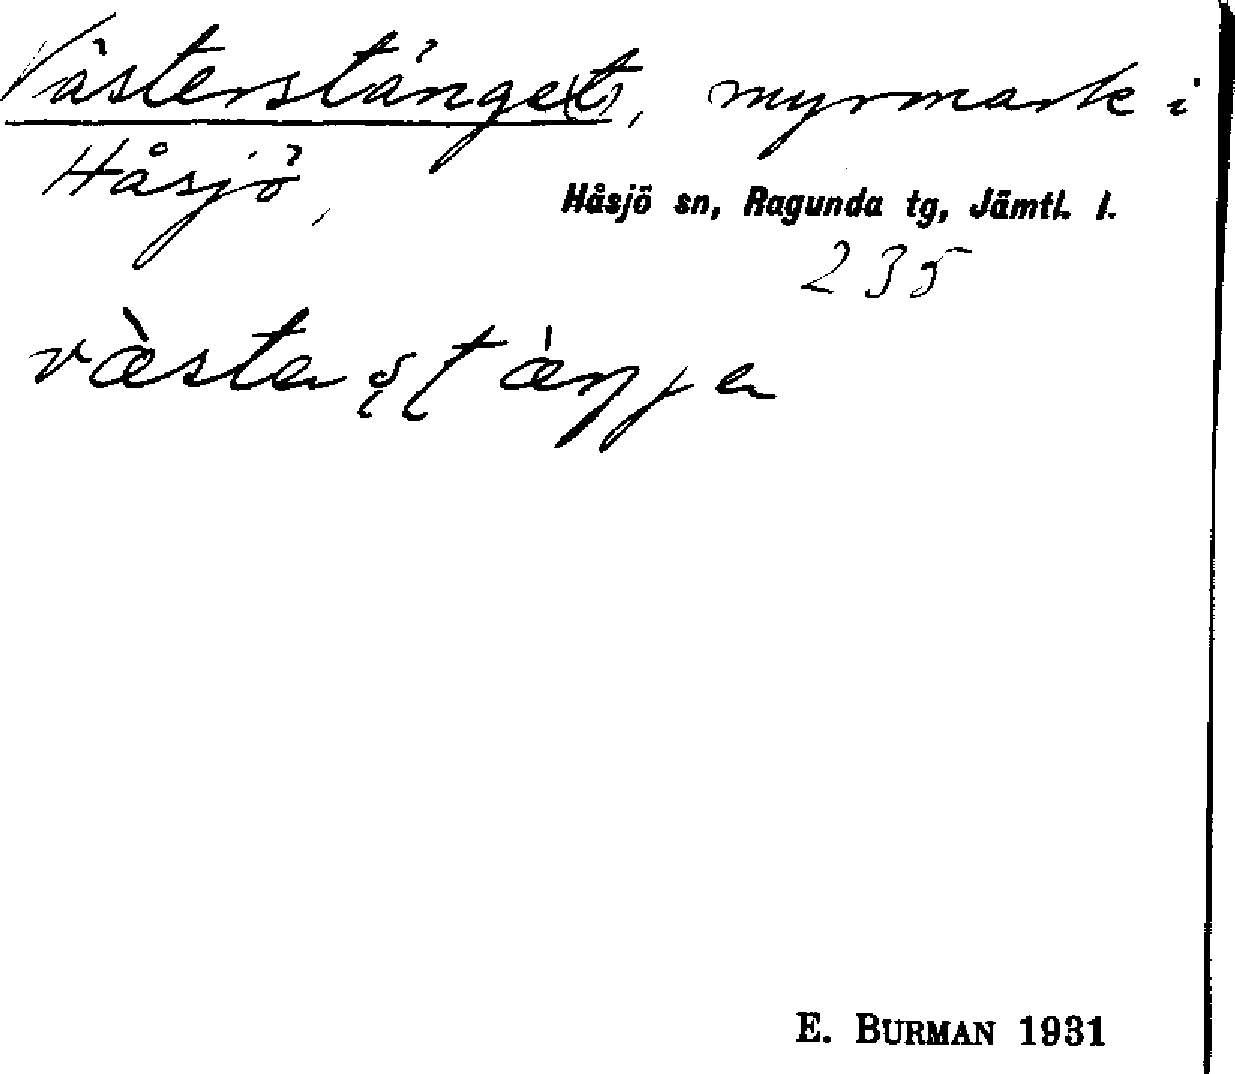 Västerstänge(t), myrmark i
Håsjö,
Håsjö sn, Ragunda tg, Jämtl. l.
235
E. BURMAN 1931